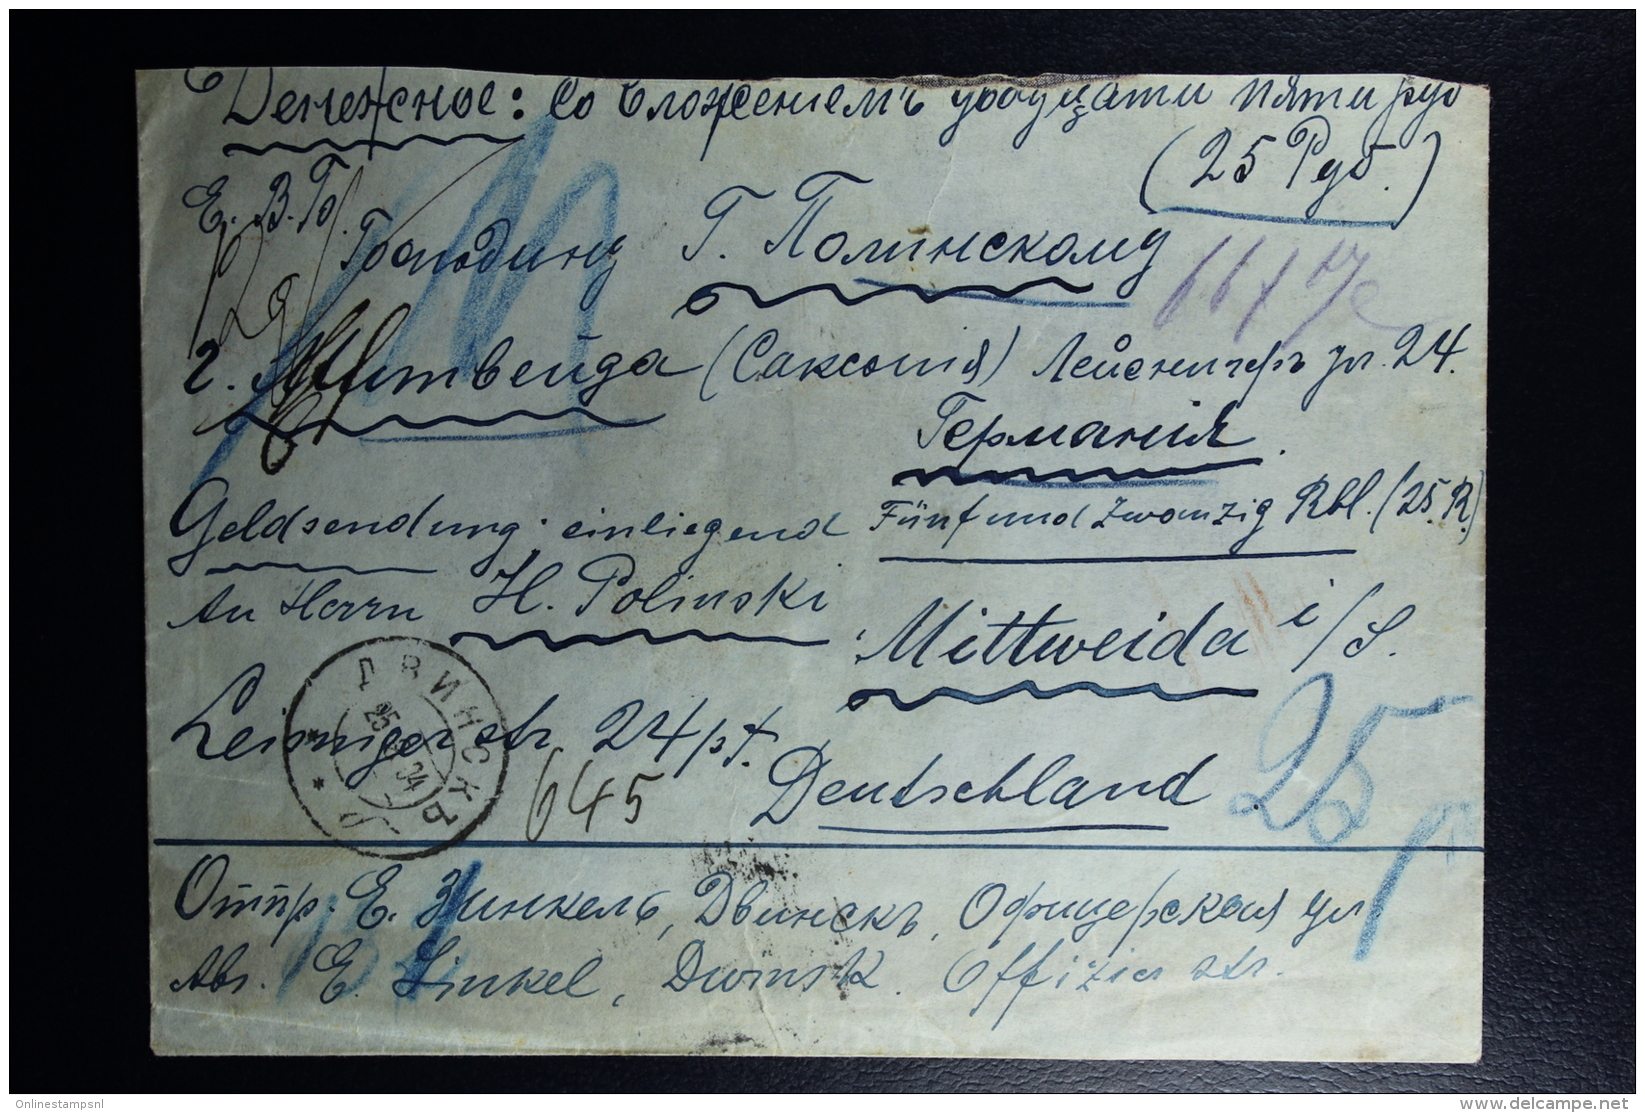 Денежное: со вложеніемъ двадцати пяти руб
(25 Руб.)
Е. В. Б.
Господину Г. Полинскому
г. Митвейда (Саксонія) Лейснигеръ ул. 24.
Германія.
Geldsendung: einliegend Fünfundzwanzig Rbl. (25 R.)
An Herrn H. Polinski
Mittweida i/S.
Leisnigerstr 24 pt.
Deutschland
ДВИНСКЪ
25 04
645
25
Отпр. Е. Зинкель, Двинскъ, Офицерская ул
Abs. E. Sinkel, Dwinsk. Offizier str.
Onlinestampsnl
delcampe.net